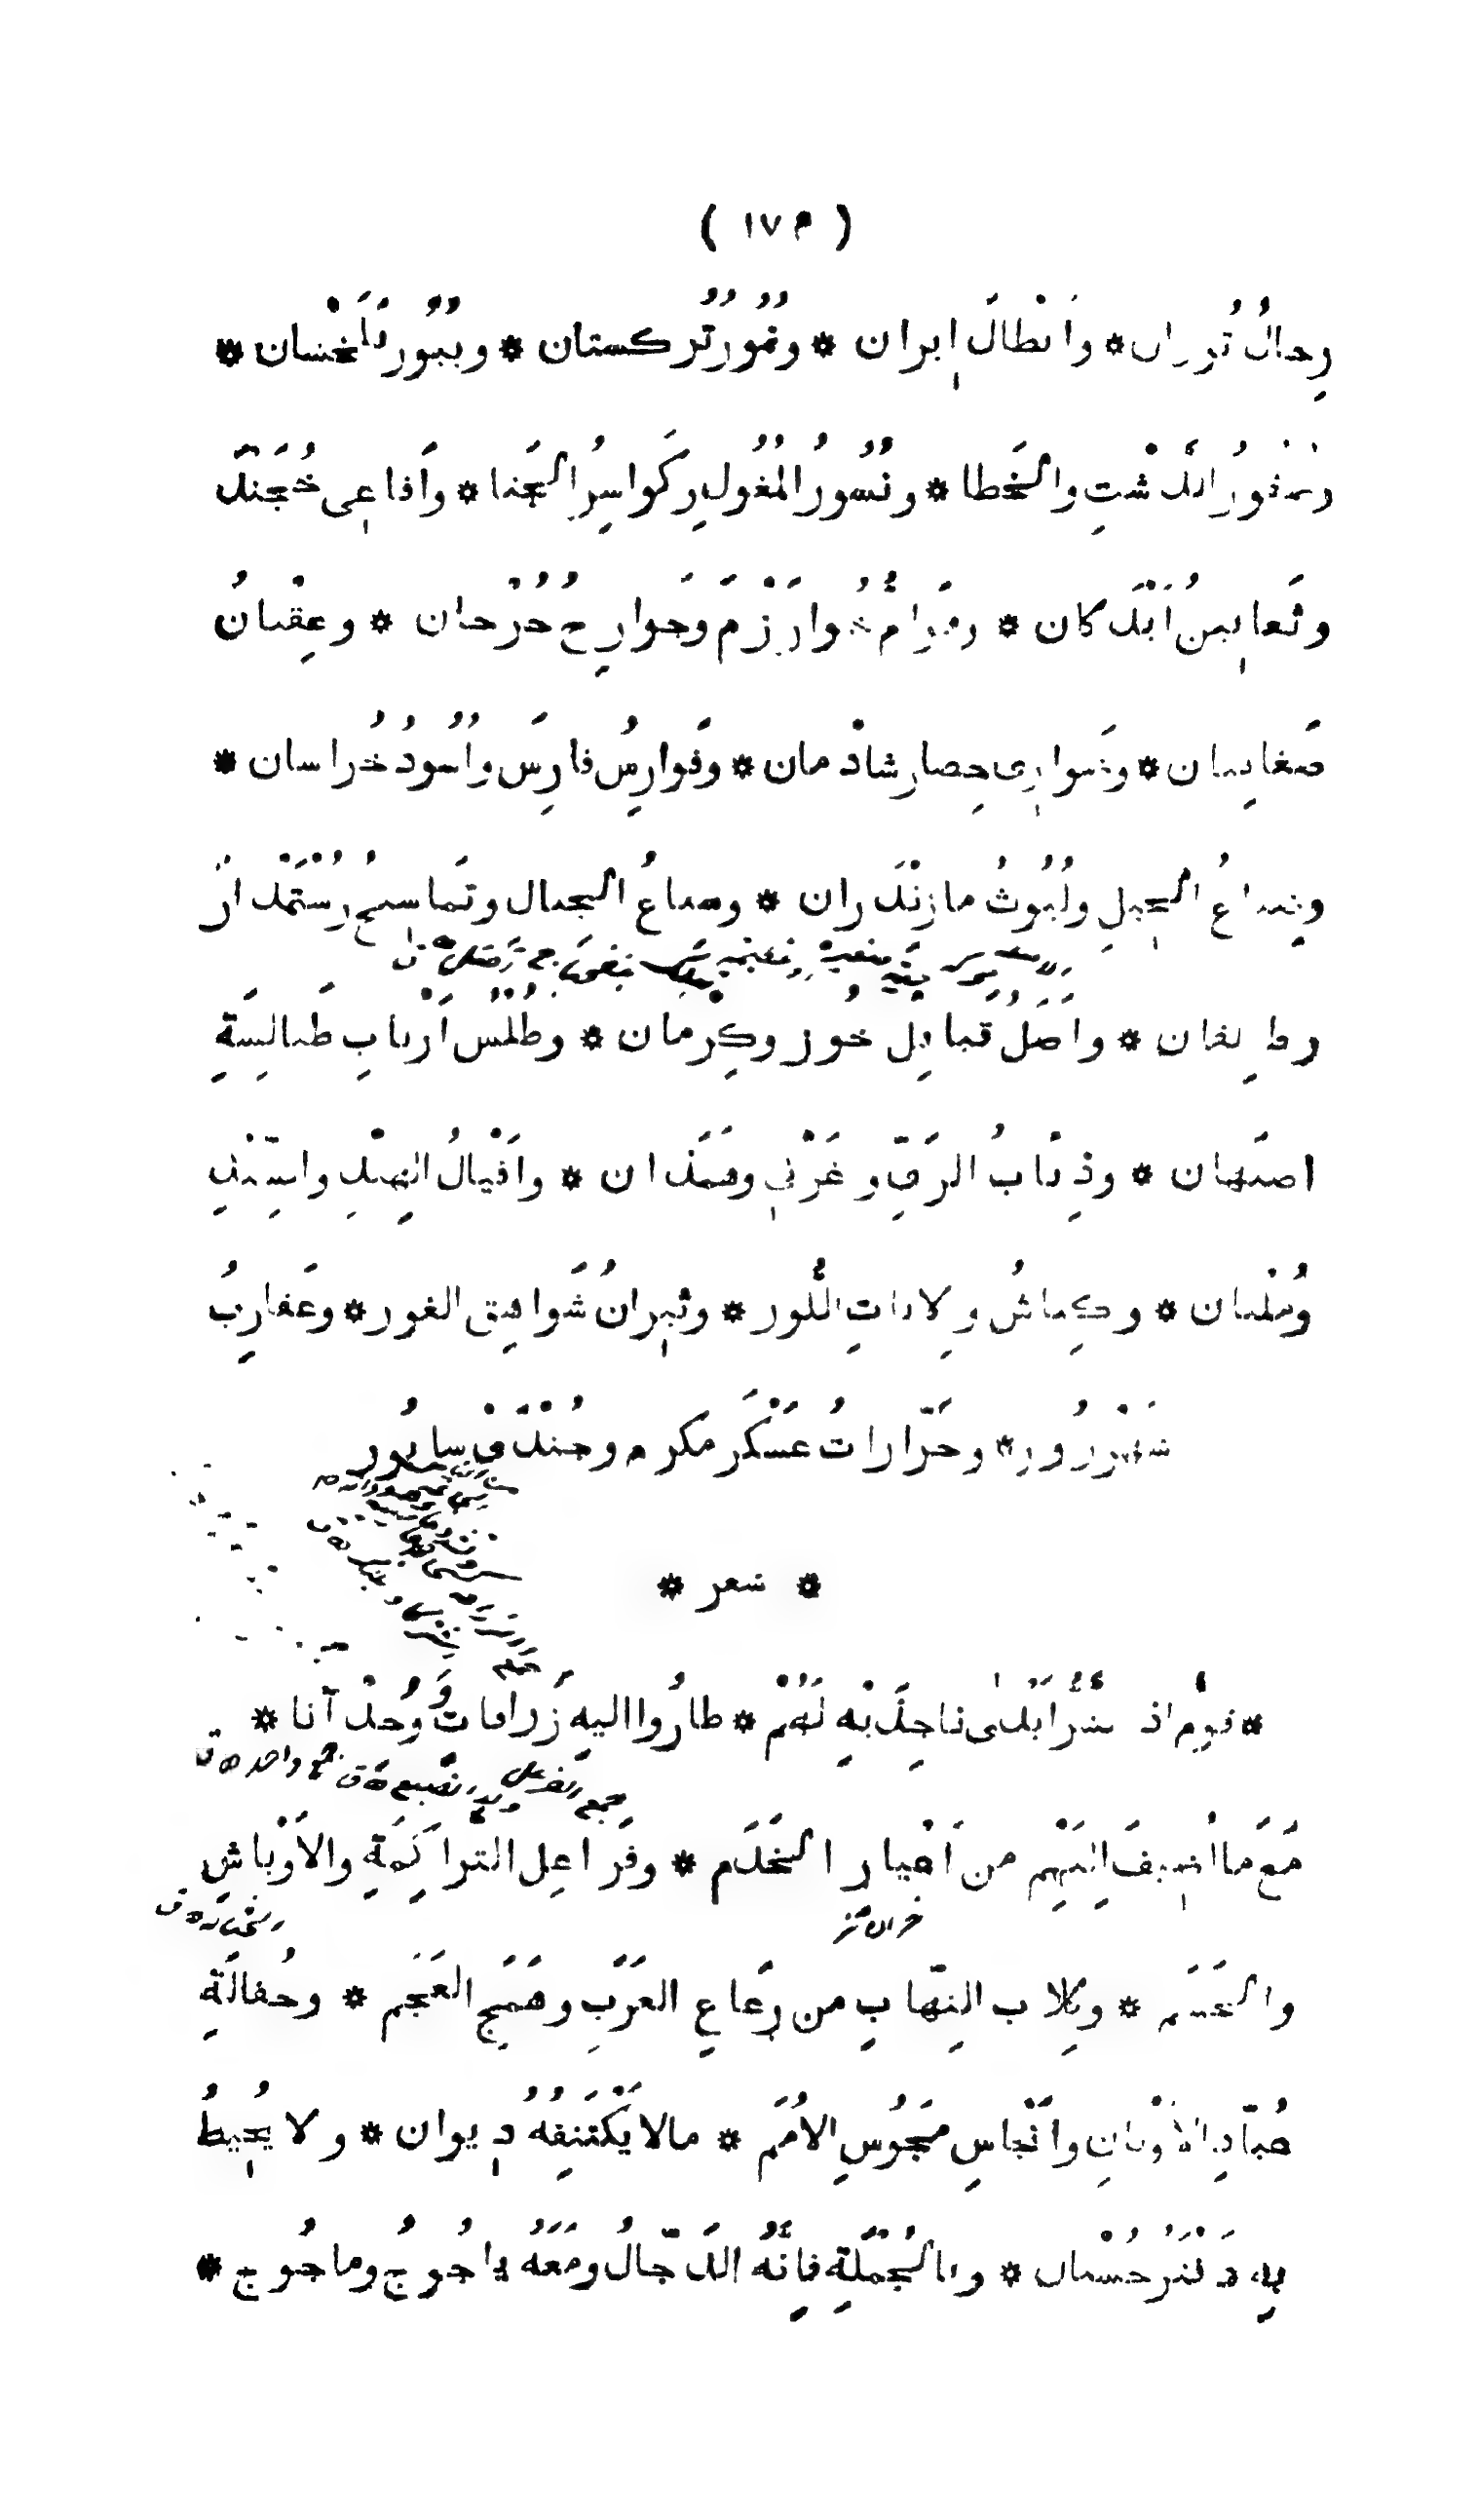 ( ١٧٢ )
رِجالُ تُوران * وأبْطالُ إيران * ونُمُورُ تُركستان * وبُبُورُ بَلَخْشان *
وصُقُورُ الدَّشْتِ والخَطا * ونُسُورُ المُغُولِ وكَواسِرُ الجَتا * وأَفاعِى خُجَنْدَ
وثَعابِينُ أَنْدَكان * وهَوامُّ خُوارَزْمَ وجَوارِحُ جُرْجان * وعِقْبانُ
صَغانِيان * وضَوارِى حِصارِ شادْمان * وفَوارِسُ فارِسَ وأُسُودُ خُراسان *
وضِباعُ الجِيلِ ولُيُوثُ مازَنْدَران * وسِباعُ الجبال وتَماسِيحُ رُسْتَمْدارَ
وطالِقان * وأَصَلُ قبايِل خُوز وكِرْمان * وطُلْسُ أَرْبابِ طَيالِسَةِ
اصبَهان * وذِئابُ الرَيّ وغَزْنِي وهَمَذان * وأَفْيالُ الهِنْدِ والسِّنْدِ
ومُلْتان * وكِباشُ وِلاياتِ اللُّور * وثِيرانُ شَواهِق الغور * وعَقارِبُ
شَهْرَزُور * وحَرّاراتُ عَسْكَر مكرم وجُنْدَيْ سابُور
* شعر *
* قومٌ اذ الشَّرُّ أَبْدَىٰ ناجِذَيْهِ لَهُمْ * طارُوا اليه زَرافاتٍ وَوُحْدآنا *
مَعَ مَا أُضِيفَ إِلَيْهِم من أَخْيار الخَدَم * وفَراعِل التَّراكِمَةِ والأَوْباشِ
والحَشَم * وكِلاب النِّهابِ من رَعاعِ العَرَبِ وهَمَجِ العَجَم * وحُفالَةِ
عُبّادِ الأَوْثانِ وأَنْجاسِ مَجُوسِ الأُمَم * مالا يَكْتَنِفُهُ دِيوان * ولا يُحِيطُ
بِهِ دَفْتَرُ حُسْبان * وبالجُمْلَةِ فَإِنَّهُ الدَّجّالُ ومَعَهُ ياجُوج وماجُوج *